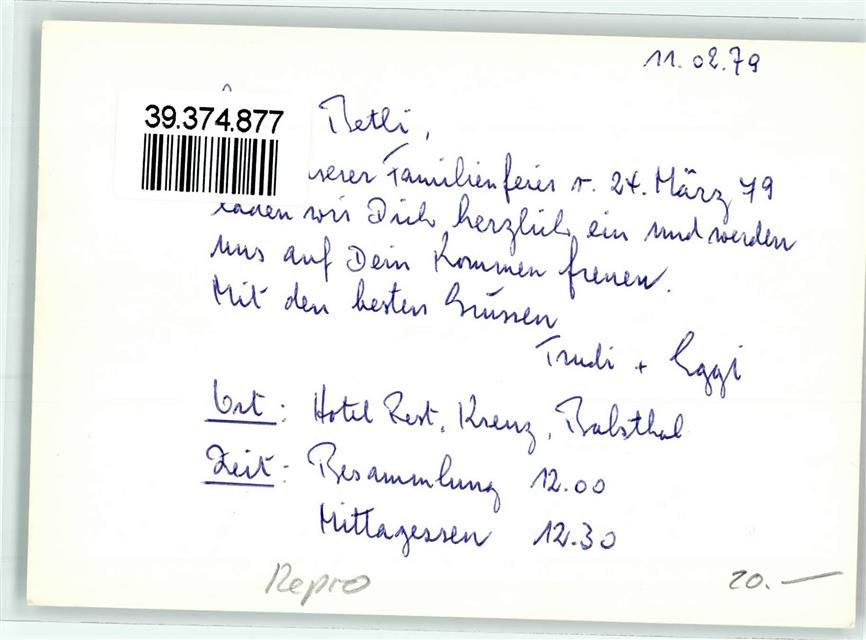 11.02.79
39.374.877
Betli,
unserer Familienfeier v. 24. März 79
laden wir Dich herzlich ein und werden
uns auf Dein Kommen freuen.
Mit den besten Grüssen
Trudi + Eggi
Ort: Hotel Rest. Kreuz, Balsthal
Zeit: Besammlung 12.00
Mittagessen 12.30
Repro
20.—